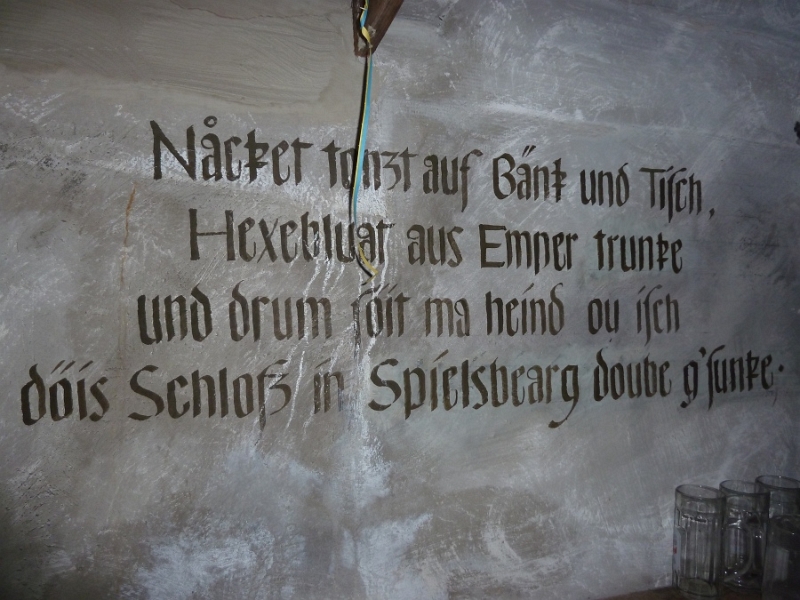 Nåcket tonzt auf Bänk und Tisch,
Hexebluat aus Emper trunke
und drum soit ma heind ou isch
döis Schloß in Spielsbearg doube g'sunke.